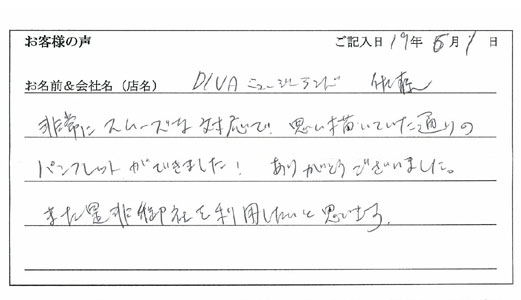 お客様の声 ご記入日 19年 5月 1日
お名前&会社名（店名） DIVA ニュージーランド 佐藤
非常にスムーズな対応で、思い描いていた通りの
パンフレットができました! ありがとうございました。
また是非御社を利用したいと思います。